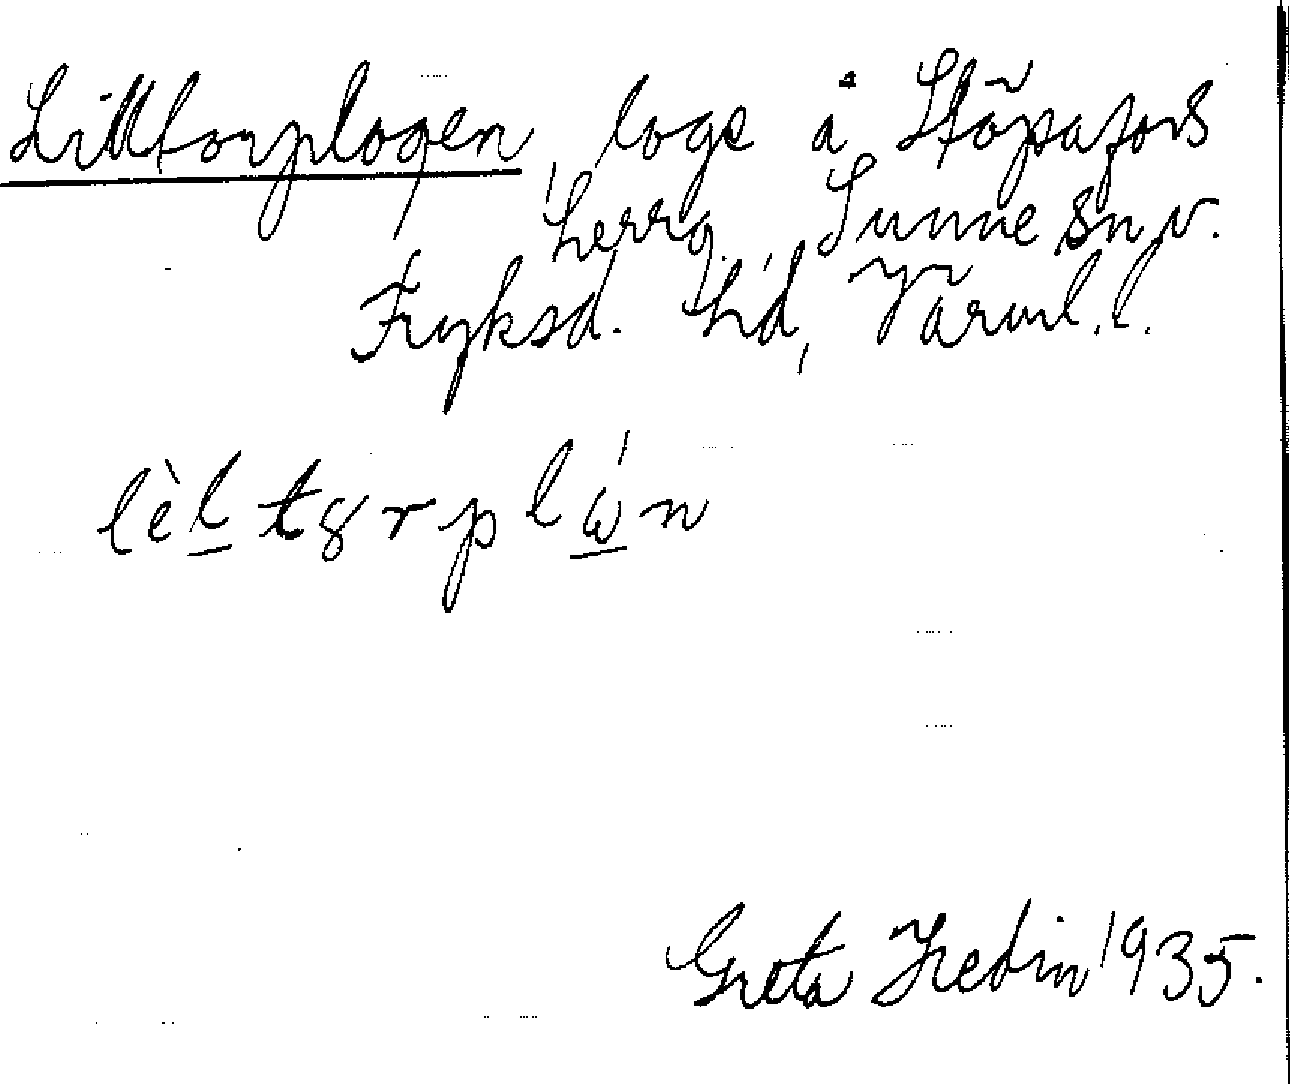 Lilltorplogen, loge å Stöpafors
herrg. Sunne sn, v.
Fryksd. hd, Värml. l.
lèltgrplώn
Greta Hedin 1935.